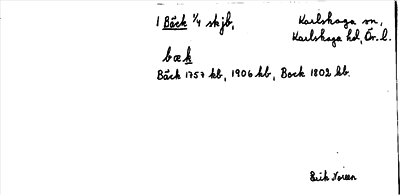 1 Bäck 1/4 skjb, Karlskoga sn,
Karlskoga hd, Ör. l.
bæk
Bäck 1757 kb, 1906 kb, Bock 1802 kb.
Erik Noreen